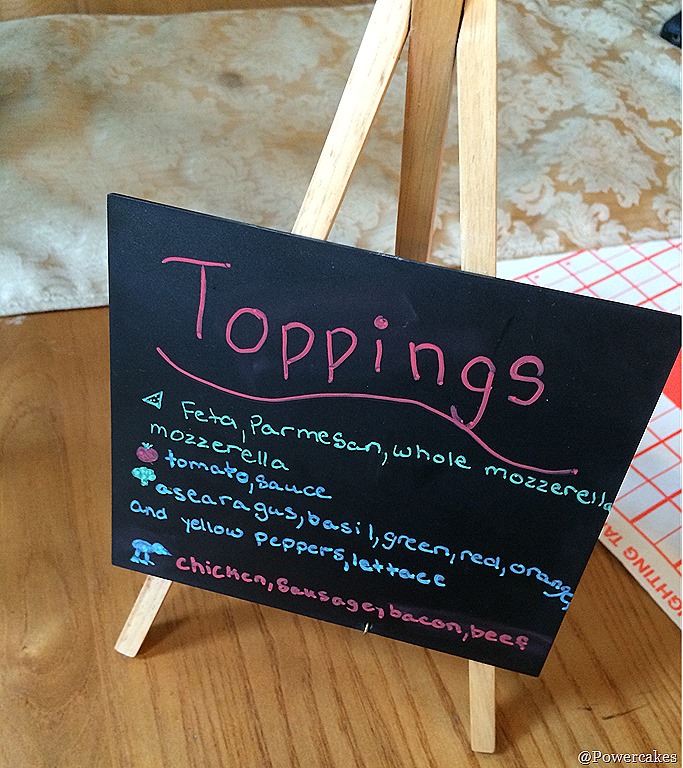 Toppings
Feta, Parmesan, whole mozzerella
mozzerella
tomato, sauce
asearagus, basil, green, red, orange,
and yellow peppers, lettace
chicken, sausage, bacon, beef
GHTING TA
@Powercakes